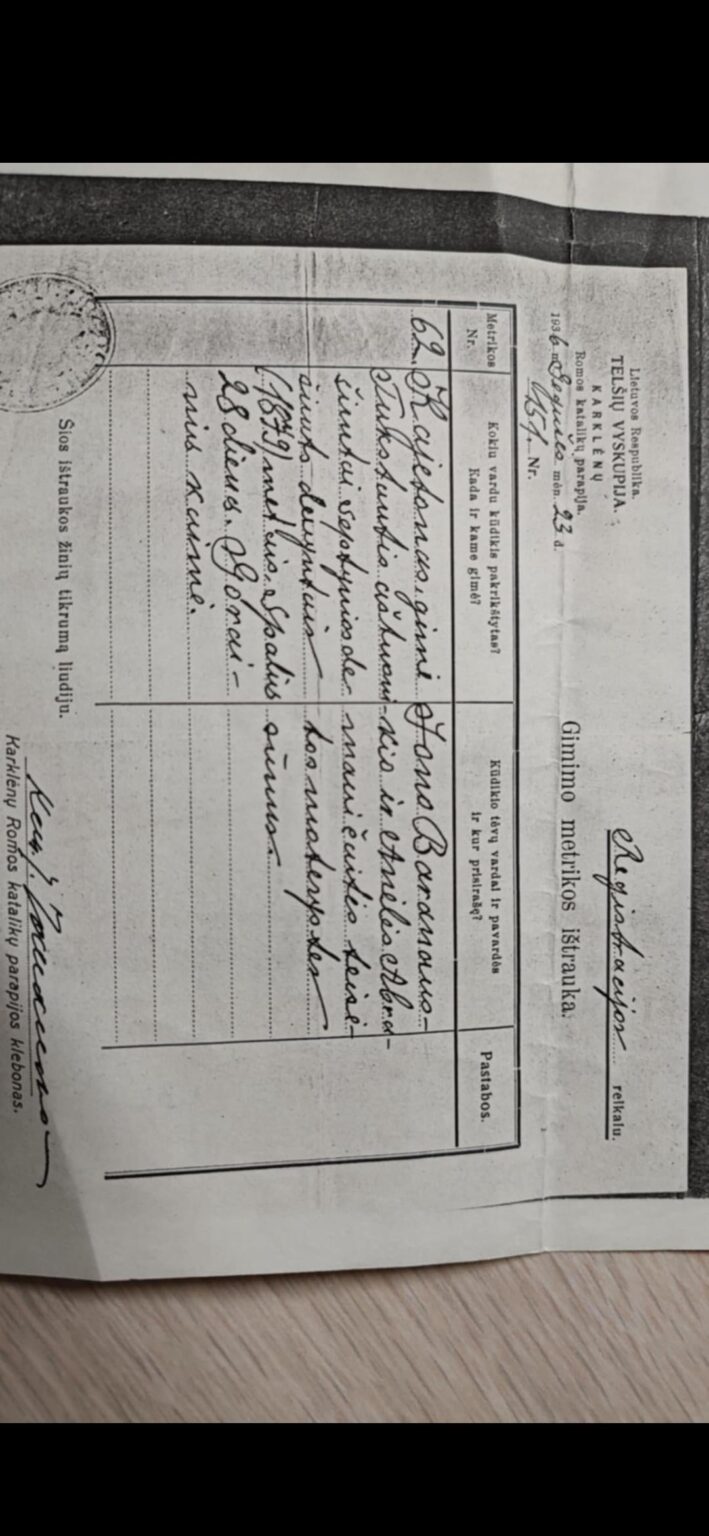 Lietuvos Respublika.
TELŠIŲ VYSKUPIJA.
KARKLĖNŲ
Romos katalikų parapija.
1936 m. Gegužės mėn. 23 d.
151. Nr.
Registracijos reikalu.
Gimimo metrikos ištrauka.
Metrikos Nr.
Kokiu vardu kūdikis pakrikštytas?
Kada ir kame gimė?
Kūdikio tėvų vardai ir pavardės
ir kur prisirašę?
Pastabos.
62. Kajetonas, gimė
Tukstantis aštuoni
šimtai septynios de-
šimts devyntais
(1879) metais, Spalių
28 dieną. Gordi-
nių kaime.
Jono Baranaus-
kio ir Anelės Abra-
mavičaitės teisė-
tos moterystės
sūnus.
Šios ištraukos žinių tikrumą liudiju.
Kun. J.
Karklėnų Romos katalikų parapijos klebonas.